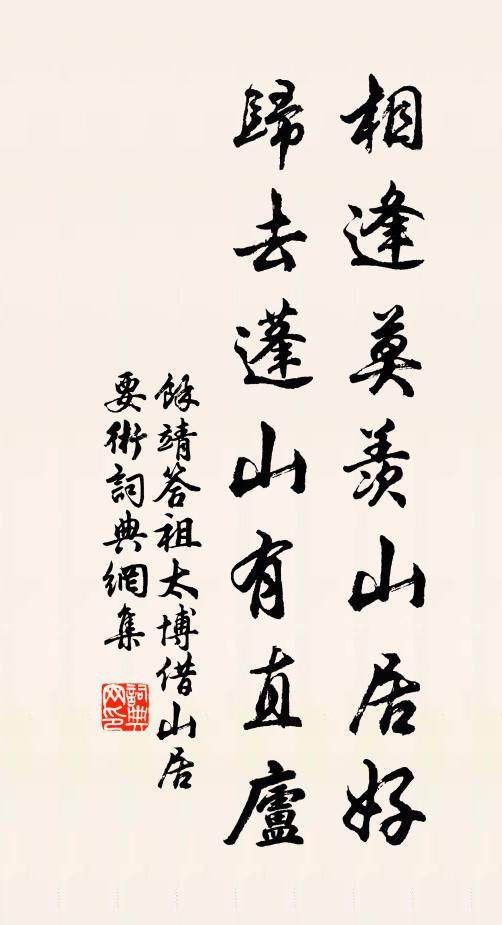 相逢莫羨山居好
歸去蓬山有直廬
餘靖答祖太博借山居
要術詞典網集
詞典网印